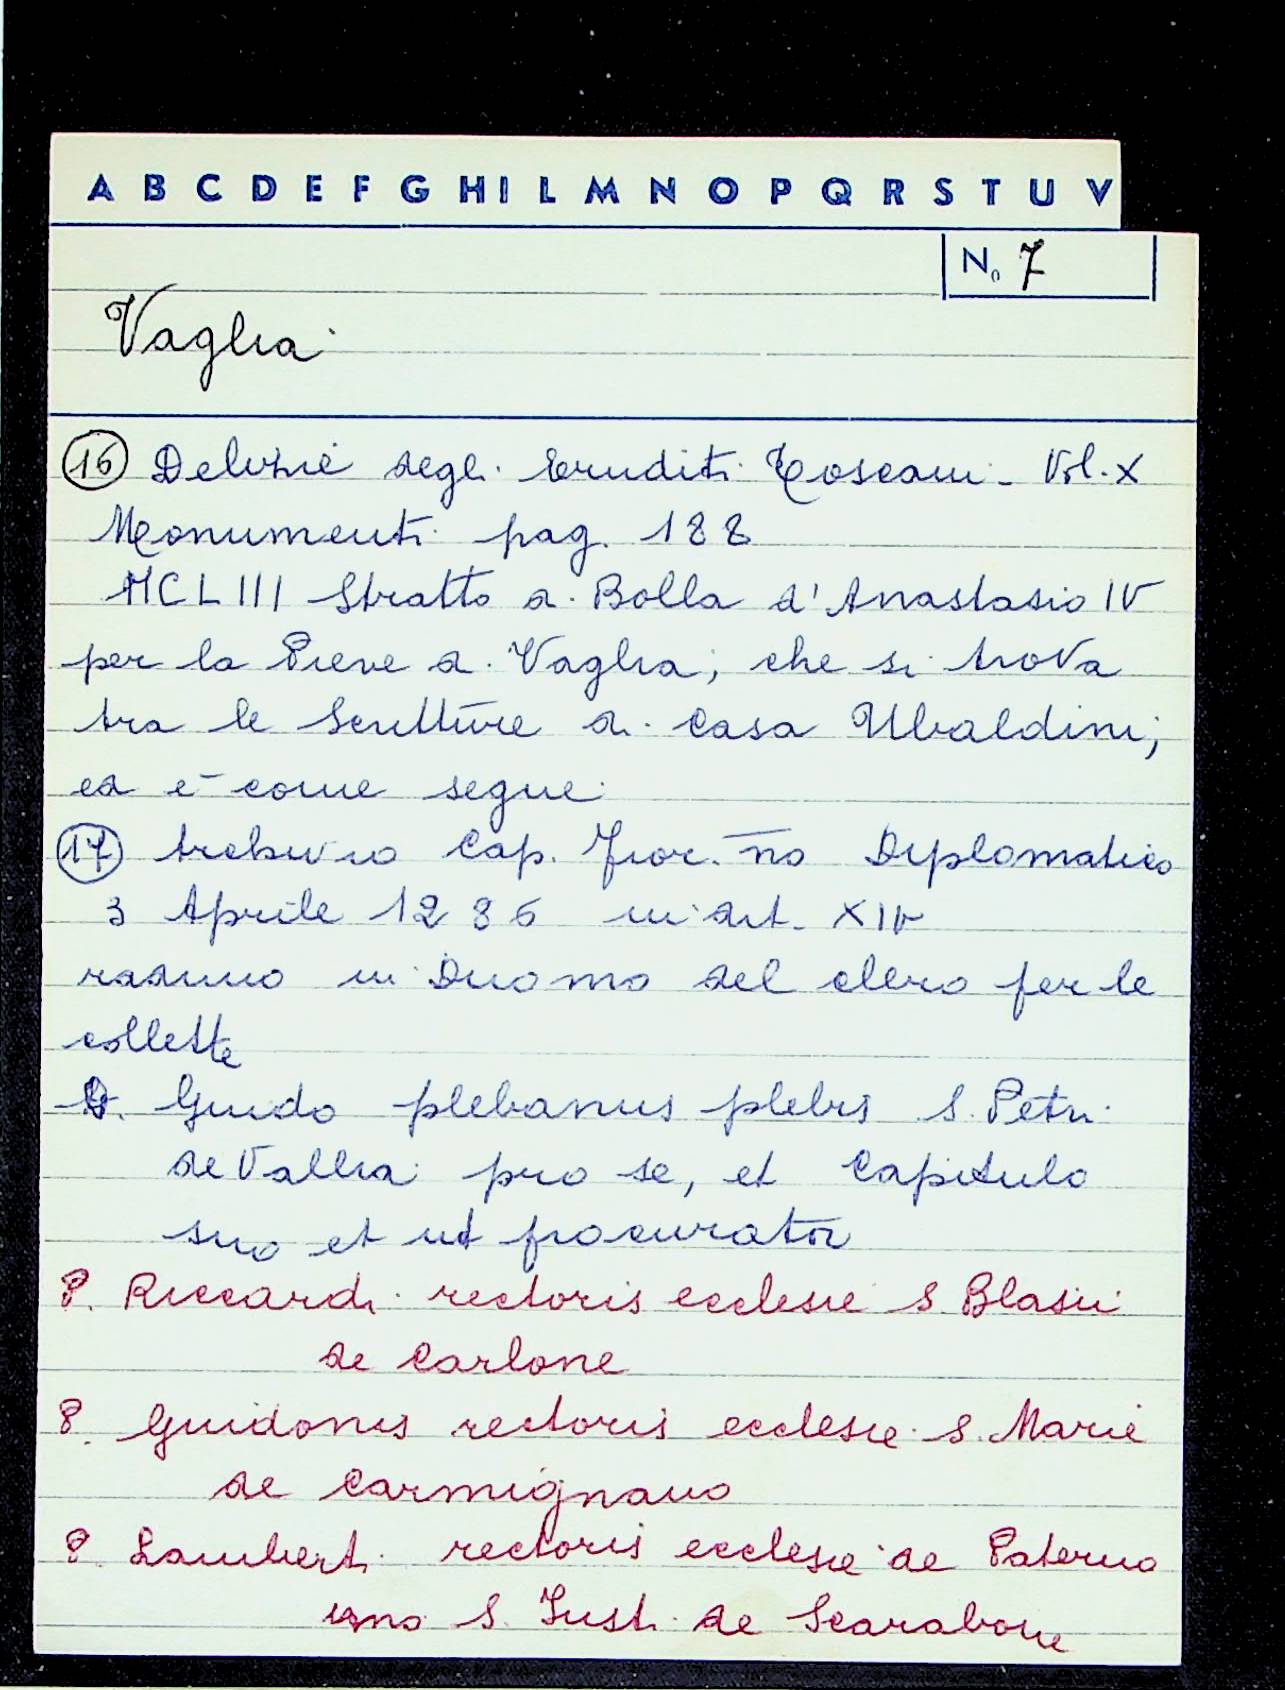 A B C D E F G H I L M N O P Q R S T U V
N. 7
Vaglia
16 Delizie degli Eruditi Toscani - Vol. X
Monumenti pag. 188
MCLIII Stratto di Bolla d'Anastasio IV
per la Pieve di Vaglia, che si trova
tra le Scritture di Casa Ubaldini;
ed è come segue
17 Archivio Cap. Fior.no Diplomatico
3 Aprile 1286 indict. XIV
raduno in Duomo del clero per le
collette
D. Guido plebanus plebis S. Petri
de Vallia pro se, et Capitulo
suo et ut procurator
P. Riccardi rectoris ecclesie S. Blasii
de Carlone
P. Guidonis rectoris ecclesie S. Marie
de Carmignano
P. Lamberti rectoris ecclesie de Paterno
S. Justi de Scarabone